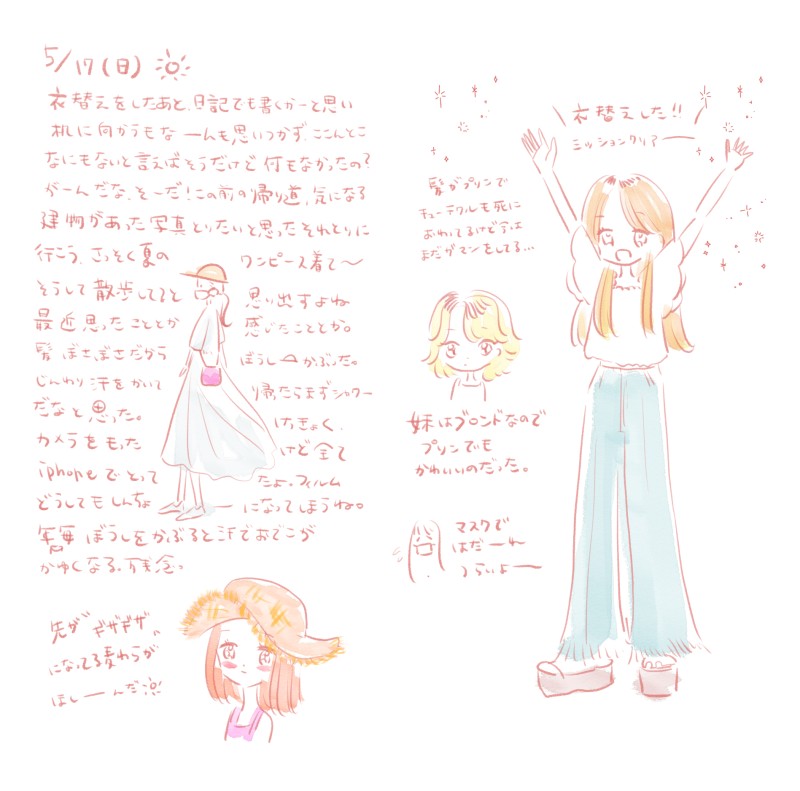 5/17(日)
衣替えをしたあと、日記でも書くかーと思い
机に向かうもなーんも思いつかず、ここんとこ
なにもないと言えばそうだけど何もなかったの?
がーんだな、そーだ!この前の帰り道、気になる
建物があった写真とりたいと思ったそれとりに
行こう、さっそく夏の ワンピース着て〜
そうして散歩してると 思い出すよね
最近思ったこととか 感じたこととか。
髪ぼさぼさだから ぼうしかぶった。
じんわり汗をかいて 帰ったらまずシャワー
だなと思った。 けっきょく、
カメラをもった けど全て
iphoneでとって たよ、フィルム
どうしてもしんちょ ーになってしまうね。
毎年ぼうしをかぶると汗でおでこが
かゆくなる、残念っ
先が"ギザギザ"
になってる麦わらが
ほしーーんだ
\衣替えした!!/
ミッションクリアー
髪がプリンで
キューティクルも死に
おわてるけど今は
まだガマンをしてる…
妹はブロンドなので
プリンでも
かわいいのだった。
マスクで
はだーれ
つらいよー